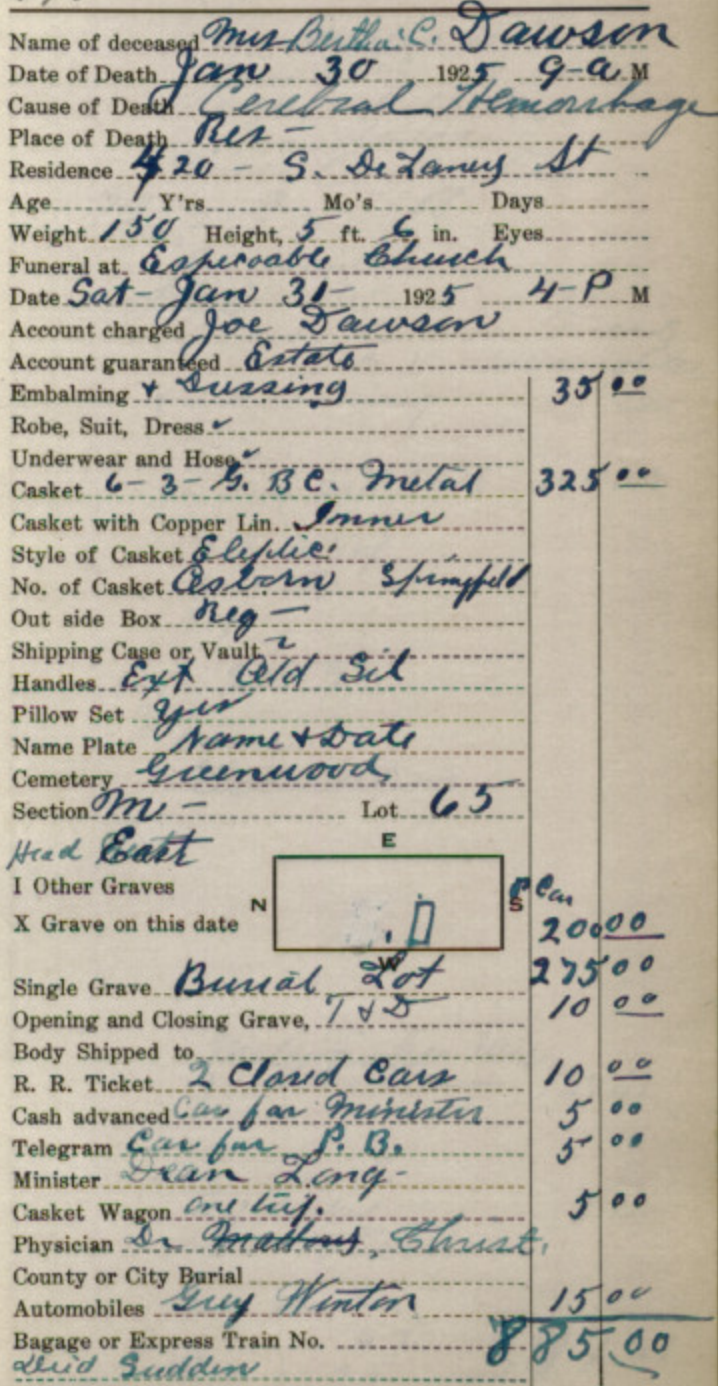 Name of deceased Mrs Bertha C. Dawson
Date of Death Jan 30 1925 9-a M
Cause of Death Cerebral Hemorrhage
Place of Death Res -
Residence 420 - S. DeLaney St
Age Y'rs Mo's Days
Weight 150 Height, 5 ft. 6 in. Eyes
Funeral at Espicoable Church
Date Sat - Jan 31 - 1925 4-P M
Account charged Joe Dawson
Account guaranteed Estate
Embalming + Dressing 35 00
Robe, Suit, Dress ✓
Underwear and Hose ✓
Casket 6-3- G. BC. Metal 325 00
Casket with Copper Lin. Inner
Style of Casket Eleptic
No. of Casket Osborn Springfeld
Out side Box Reg -
Shipping Case or Vault
Handles Ext Old Sil
Pillow Set Yes
Name Plate Name + Date
Cemetery Greenwood
Section M - Lot 65
Head East
E
I Other Graves
N S Car
X Grave on this date 200 00
W
Single Grave Burial Lot 275 00
Opening and Closing Grave, T & D 10 00
Body Shipped to
R. R. Ticket 2 Closed Cars 10 00
Cash advanced Car for Minister 5 00
Telegram Car for P. B. 5 00
Minister Dean Long -
Casket Wagon one trip. 5 00
Physician Dr Mathews, Christ.
County or City Burial
Automobiles Grey Winton 15 00
Bagage or Express Train No. 885.00
Died Sudden